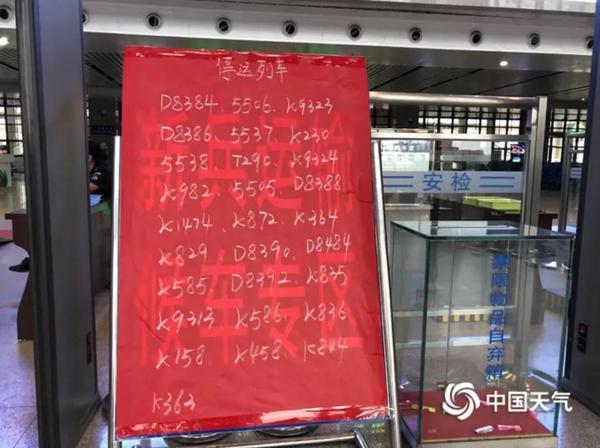 停运列车
D8384、5506、K9323
D8386、5537、K230
5538、T290、K9324
K982、5505、D8388
K1474、K872、K364
K829、D8390、D8484
K585、D8392、K835
K9313、K586、K836
K158、K458、K844
K363
安检
禁限物品自弃箱
中国天气